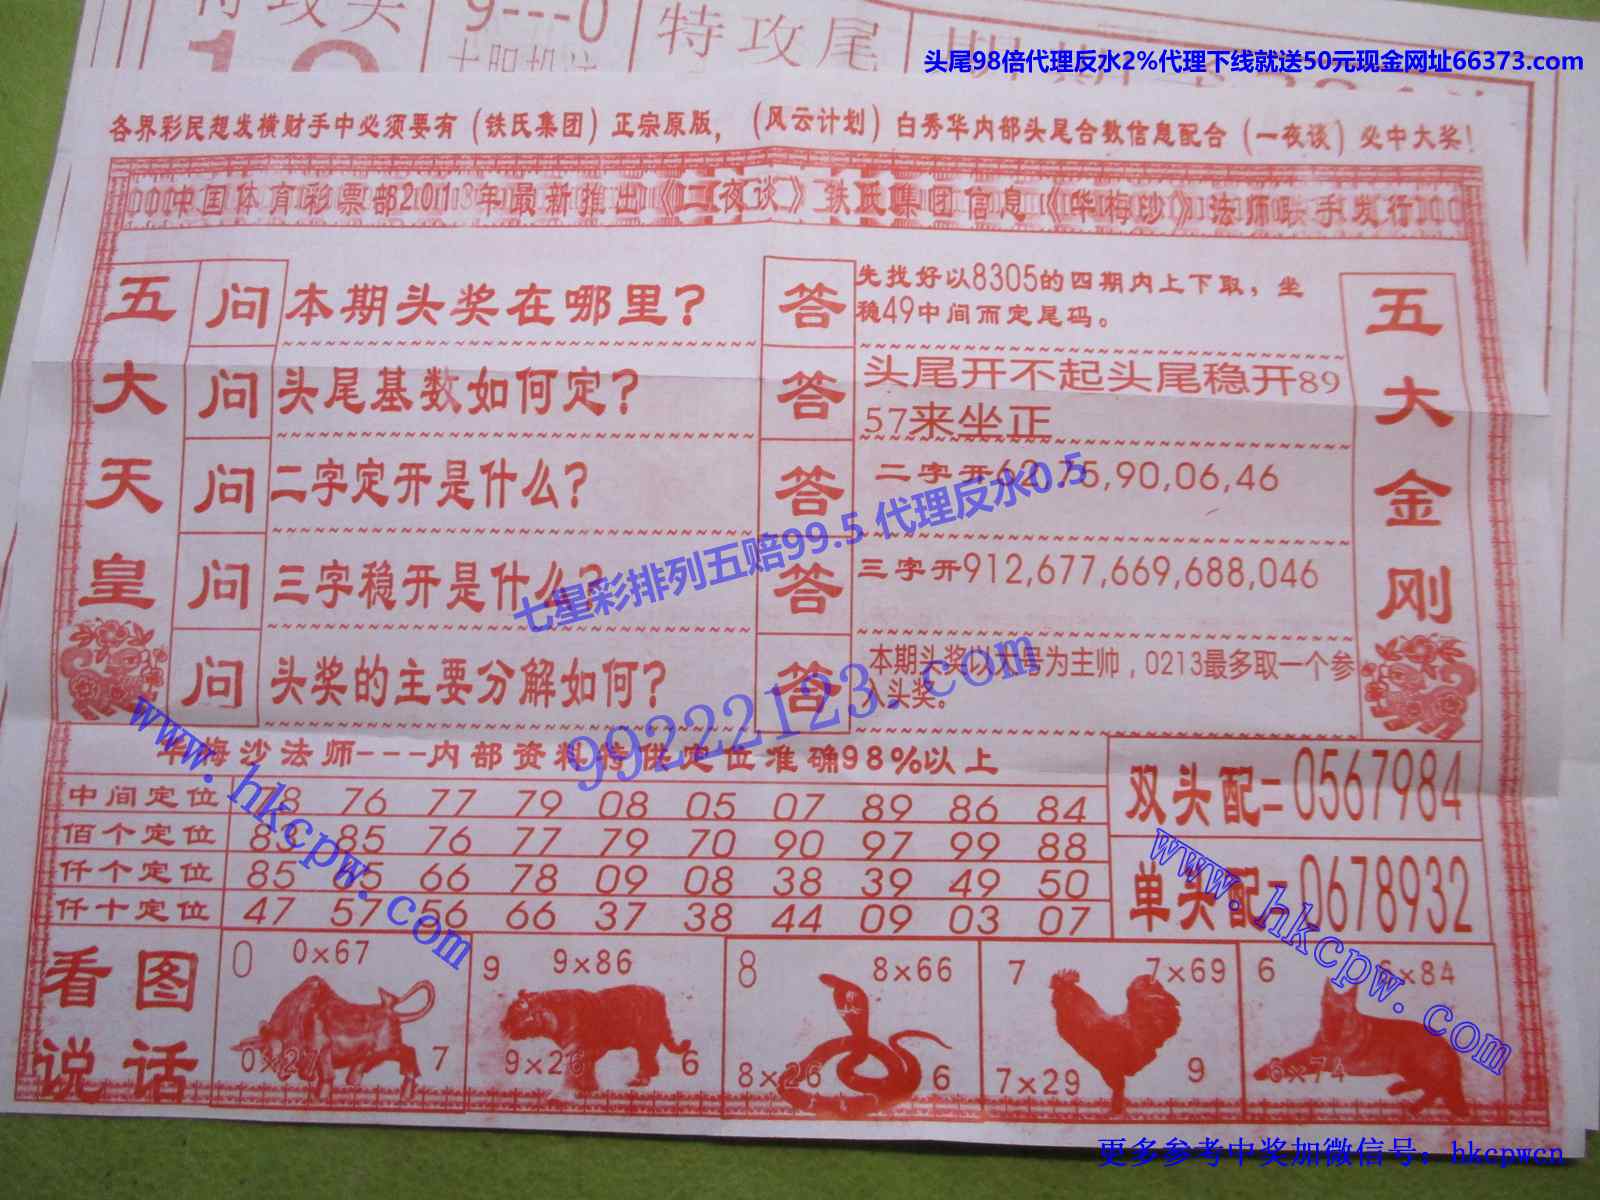 特攻头
9---0
特攻尾
头尾98倍代理反水2%代理下线就送50元现金网址66373.com
各界彩民想发横财手中必须要有（铁氏集团）正宗原版，（风云计划）白秀华内部头尾合数信息配合（一夜谈）必中大奖！
中国体育彩票部2013年最新推出《二夜谈》铁氏集团信息《华梅沙》法师联手发行
五大天皇
问 本期头奖在哪里？
答 先找好以8305的四期内上下取，坐
稳49中间而定尾码。
问 头尾基数如何定？
答 头尾开不起头尾稳开89
57来坐正
问 二字定开是什么？
答 二字开62,75,90,06,46
问 三字稳开是什么？
答 三字开912,677,669,688,046
问 头奖的主要分解如何？
答 本期头奖以大号为主帅，0213最多取一个参
入头奖。
五大金刚
七星彩排列五赔99.5 代理反水0.5
99222123.com
华梅沙法师---内部资料特供定位准确98%以上
中间定位 78 76 77 79 08 05 07 89 86 84
佰个定位 83 85 76 77 79 70 90 97 99 88
仟个定位 85 65 66 78 09 08 38 39 49 50
仟十定位 47 57 56 66 37 38 44 09 03 07
双头配=0567984
单头配=0678932
www.hkcpw.com
www.hkcpw.com
看图
说话
0 0×67
0×27 7
9 9×86
9×26 6
8 8×66
8×26 6
7 7×69
7×29 9
6 6×84
6×74
更多参考中奖加微信号：hkcpwcn